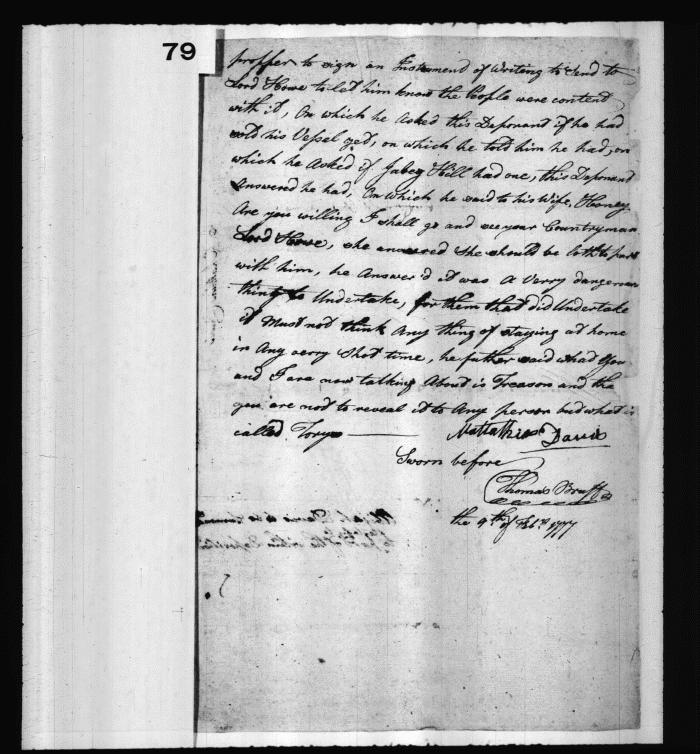 79
proffer to sign an Instrument of Writing to Send to
Lord Howe to let him know the People were content
with it, On which he Asked this Deponant if he had
sold his Vessel yet, on which he told him he had, on
which he Asked if Jabez Hill had one, this Deponant
Answered he had, On which he said to his Wife, Honey
Are you willing I shall go and see your Countryman
Lord Howe, she answered She should be loth to part
with him, he Answer'd it was A Verry dangerous
thing to Undertake, for them that did Undertake
it Must not think Any thing of staying at home
in Any verry Shot time, he futher said what You
and I are now talking About is Treason and the
you are not to reveal it to Any person but what is
called Torys
Mattathias Davis
Sworn before
Thomas Bruff
the 9th of Feby 1777